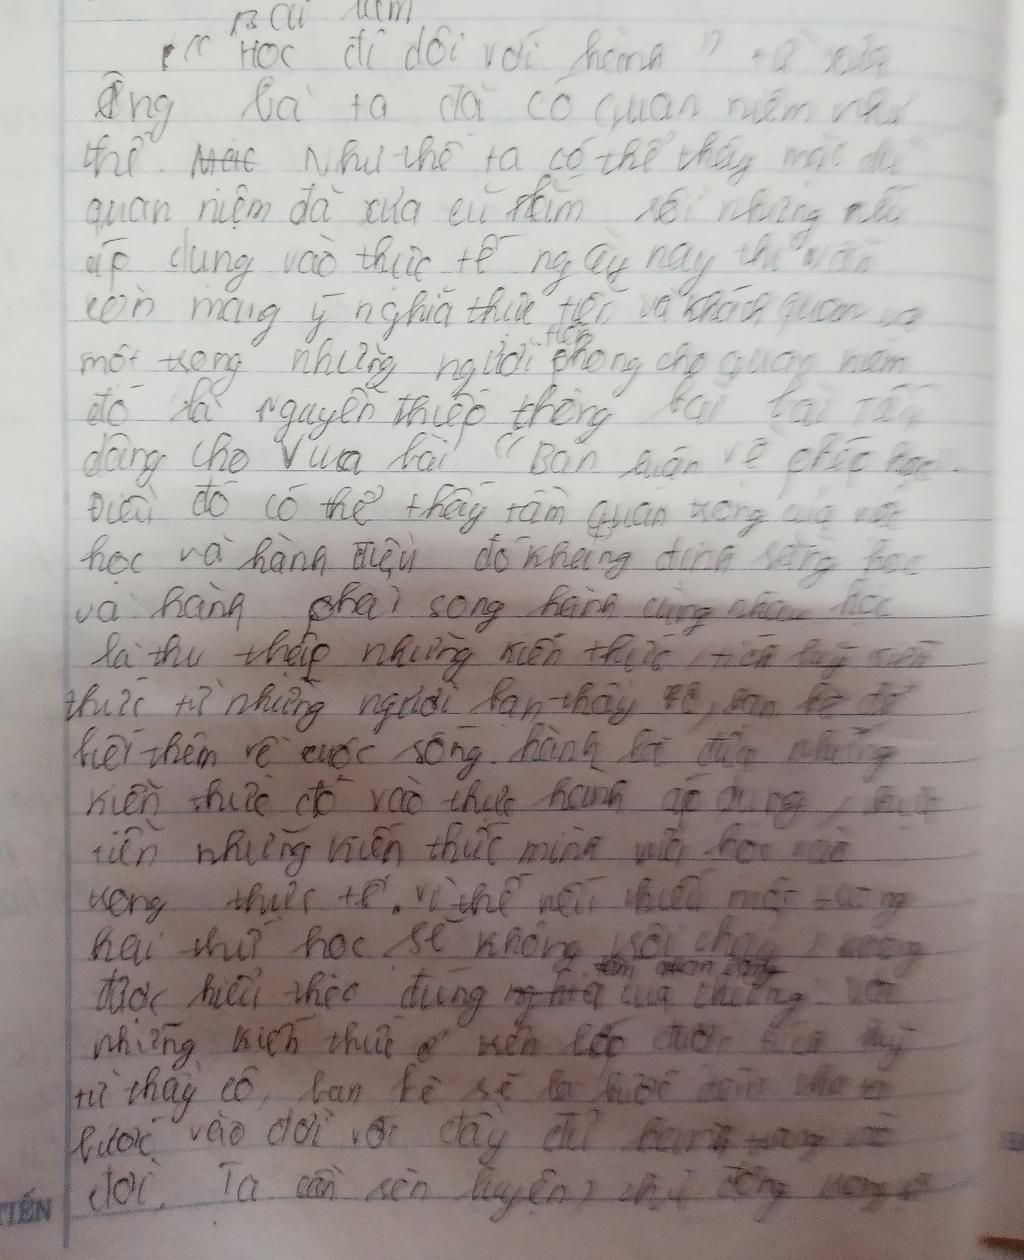 " Học đi đôi với hành " từ xưa
ông bà ta đã có quan niệm như
thế. Như thế ta có thể thấy mặc dù
quan niệm đã xưa cũ lắm rồi nhưng nếu
áp dụng vào thực tế ngày nay thì vẫn
còn mang ý nghĩa thực tiễn và khách quan và
một trong những người tiên phong cho quan niệm
đó là Nguyễn Thiếp thông
dâng cho Vua bài " Bàn luận về phép học
Điều đó có thể thấy tầm quan trọng của việc
học và hành điều đó khẳng định rằng học
và hành phải song hành cùng nhau học
là thu thập những kiến thức, tích luỹ kiến
thức từ những người bạn thầy cô, bạn bè để
biết thêm về cuộc sống. hành là đưa những
kiến thức đó vào thực hành áp dụng, thực
tiễn những kiến thức mình mới học vào
trong thực tế. vì thế nếu thiếu một trong
hai thứ học sẽ không
được hiểu theo đúng tầm quan trọng của chúng. với
những kiến thức ở trên lớp được tích luỹ
từ thầy cô, bạn bè sẽ là bước đệm cho ta
bước vào đời với đầy đủ hành trang
đời. Ta cần rèn luyện, chủ động trong
TIẾN